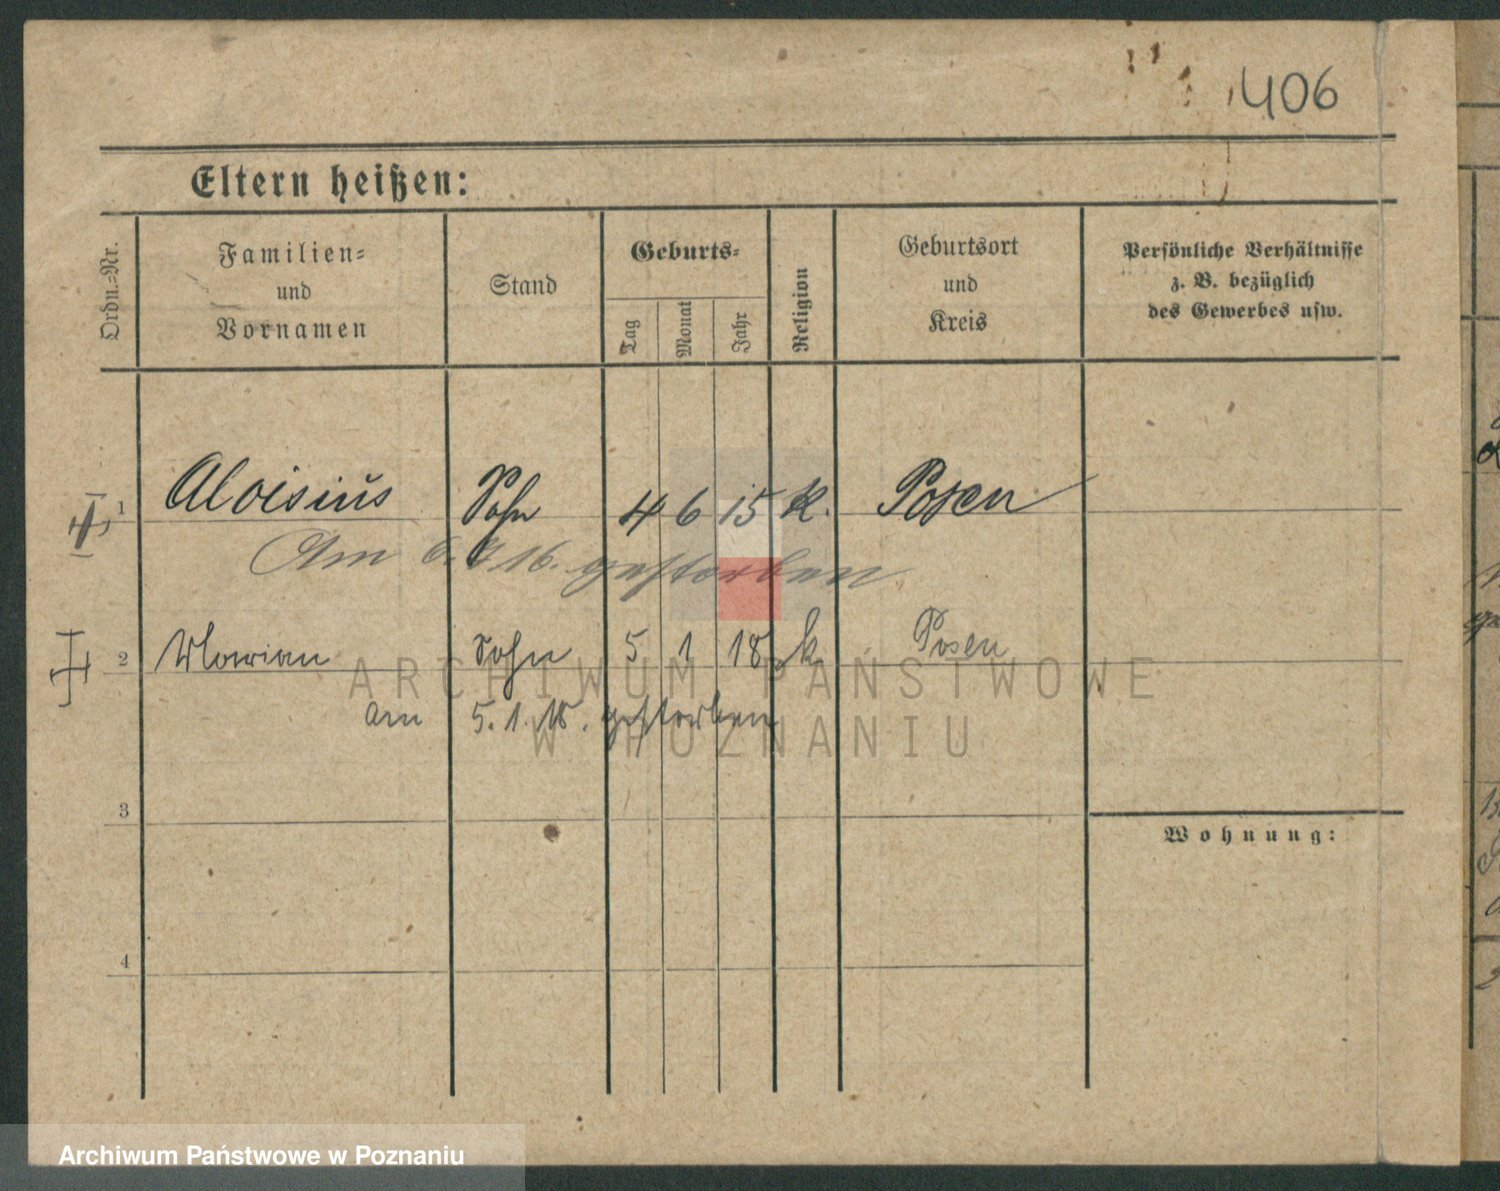 406
Eltern heißen:
Ordn.-Nr.
Familien-
und
Vornamen
Stand
Geburts-
Tag
Monat
Jahr
Religion
Geburtsort
und
Kreis
Persönliche Verhältnisse
z. B. bezüglich
des Gewerbes usw.
1 Aloisius Sohn 4 6 15 k. Posen
Am 6. 16. gestorben
2 Marian Sohn 5 1 18 k Posen
am 5. 1. 18. gestorben
3
Wohnung:
4
ARCHIWUM PAŃSTWOWE
W POZNANIU
Archiwum Państwowe w Poznaniu